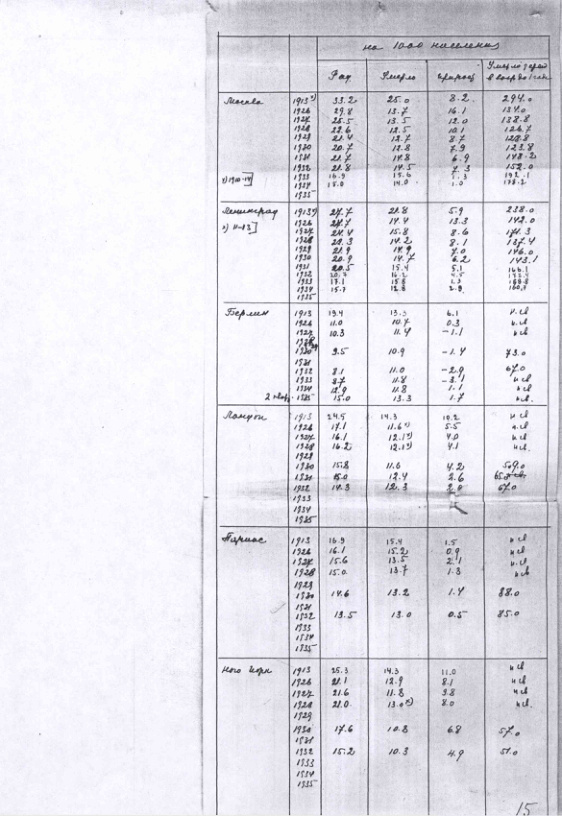 на 1000 населения
Род. Умерло природ Умерло детей в возр до 1 г.
Москва 1913 33.2 25.0 8.2 294.0
1926 29.8 13.7 16.1 134.0
1927 25.5 13.5 12.0 138.8
1928 22.6 12.5 10.1 126.7
1929 21.4 12.7 8.7
1930 20.7 12.8 7.9 123.8
1931 21.7 14.8 6.9 148.2
1932 21.8 14.5 7.3 152.0
1933 15.6 192.1
1934 15.0 14.0 1.0
1935
Ленинград 1913 27.7 21.8 5.9 238.0
1926 27.7 14.4 13.3 142.0
1927 24.4 15.8 8.6 171.3
1928 22.3 14.2 8.1 137.4
1929 21.9 14.9 7.0 146.0
1930 20.9 14.7 6.2 143.1
1931 20.5 15.4 5.1
1932
1933
1934
1935
Берлин 1913 19.4 13.3 6.1 н.св
1926 11.0 10.7 0.3 н.св
1927 10.3 11.4 -1.1 н.св
1930 9.5 10.9 -1.4 73.0
1932 8.1 11.0 -2.9 67.0
1933 8.7 11.8 -3.1 н св
1934 12.9 11.8 1.1 н св
1935 15.0 13.3 1.7 н св.
Лондон 1913 24.5 14.3 10.2 н св
1926 17.1 11.6 5.5 н.св
1927 16.1 12.1 4.0 н.св
1928 16.2 12.1 4.1 н.св.
1929
1930 15.8 11.6 4.2 59.0
1931 15.0 12.4 2.6
1932 14.3 12.3 2.0 67.0
1933
1934
1935
Париж 1913 16.9 15.4 1.5 н св
1926 16.1 15.2 0.9 н.св
1927 15.6 13.5 2.1 н.св
1928 15.0 13.7 1.3 н св
1929
1930 14.6 13.2 1.4 88.0
1931
1932 13.5 13.0 0.5 85.0
1933
1934
1935
Нью Йорк 1913 25.3 14.3 11.0 н св
1926 21.1 12.9 8.1 н св
1927 21.6 11.8 9.8 н св
1928 21.0 13.0 8.0 н св.
1929
1930 17.6 10.8 6.8 57.0
1931
1932 15.2 10.3 4.9 51.0
1933
1934
1935
15